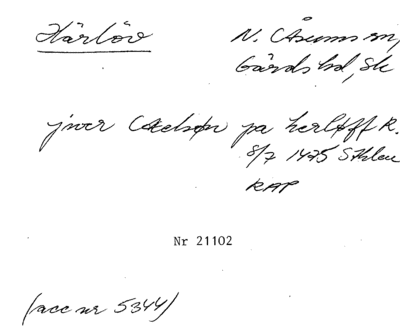 Härlöv
N. Åsums sn,
Gärds hd, Sk
jwer Axelsøn pa herløff R.
8/7 1475 Sthlm
RAP
Nr 21102
(acc nr 5344)